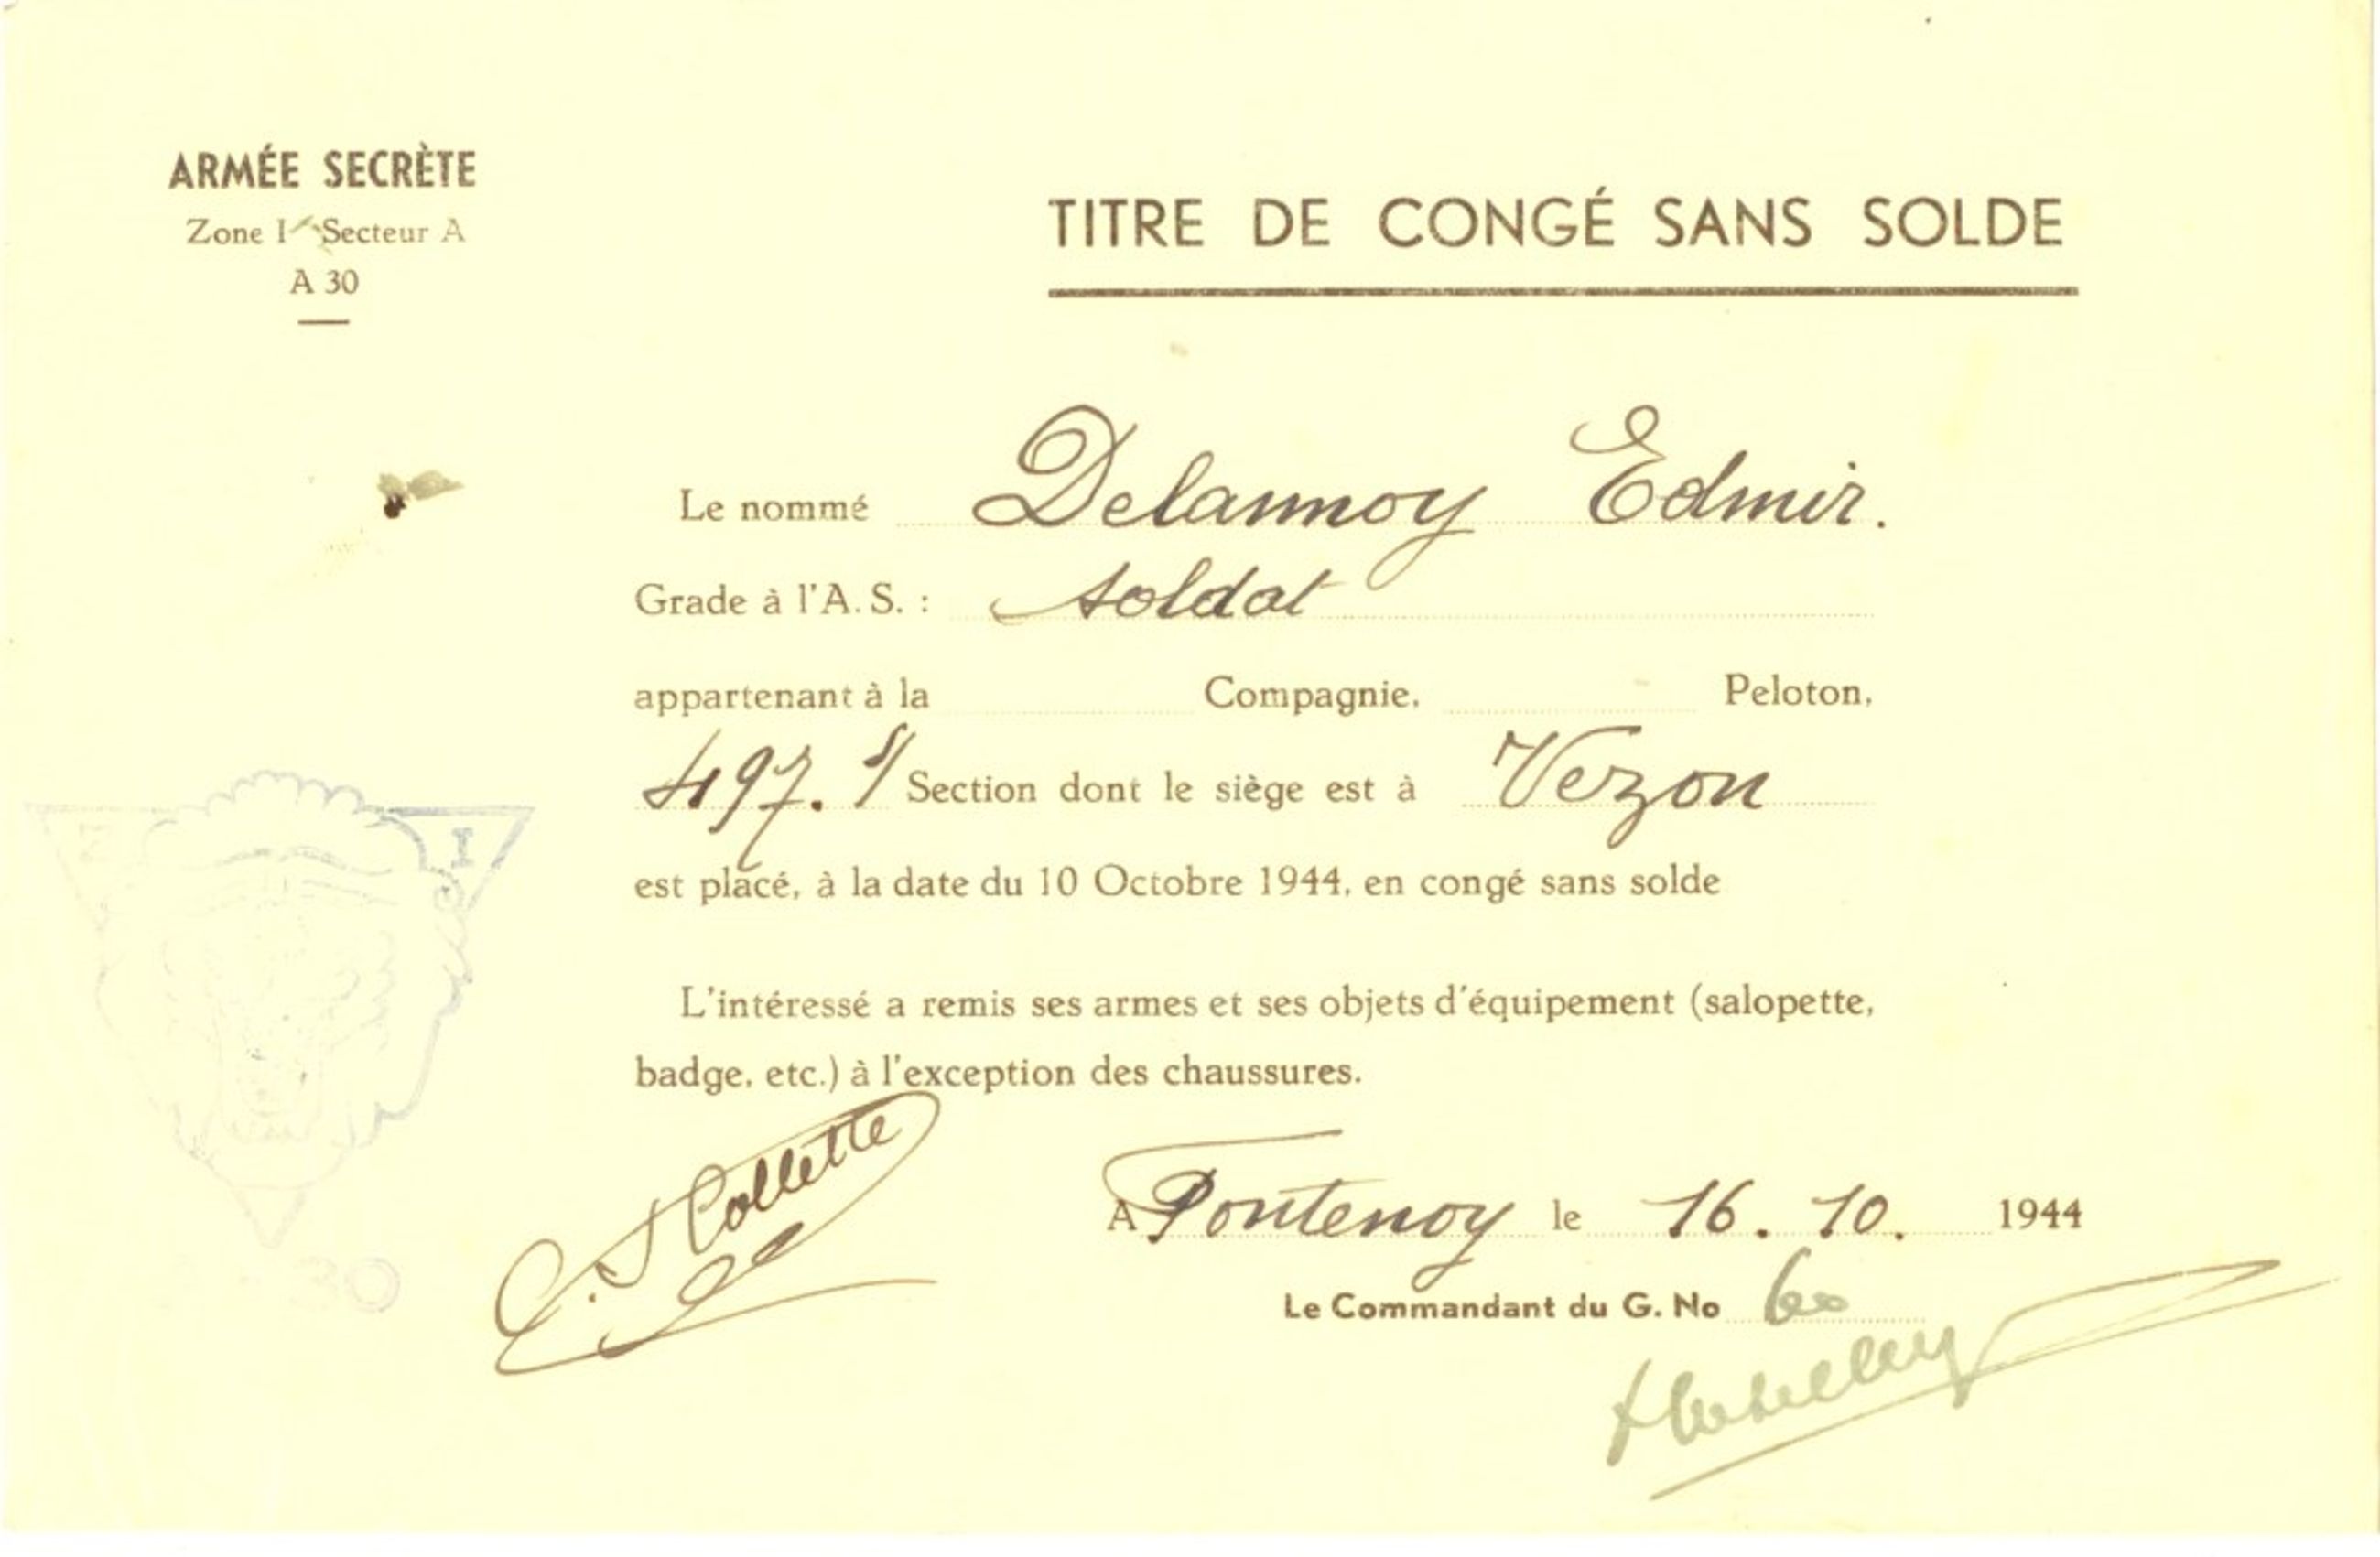 ARMÉE SECRÈTE
Zone I - Secteur A
A 30
TITRE DE CONGÉ SANS SOLDE
Le nommé Delannoy Edmir.
Grade à l'A.S. : soldat
appartenant à la Compagnie, Peloton,
497. s/ Section dont le siège est à Vezon
est placé, à la date du 10 Octobre 1944, en congé sans solde
L'intéressé a remis ses armes et ses objets d'équipement (salopette,
badge, etc.) à l'exception des chaussures.
Collette
A Fontenoy le 16. 10. 1944
Le Commandant du G. No 60
I
30